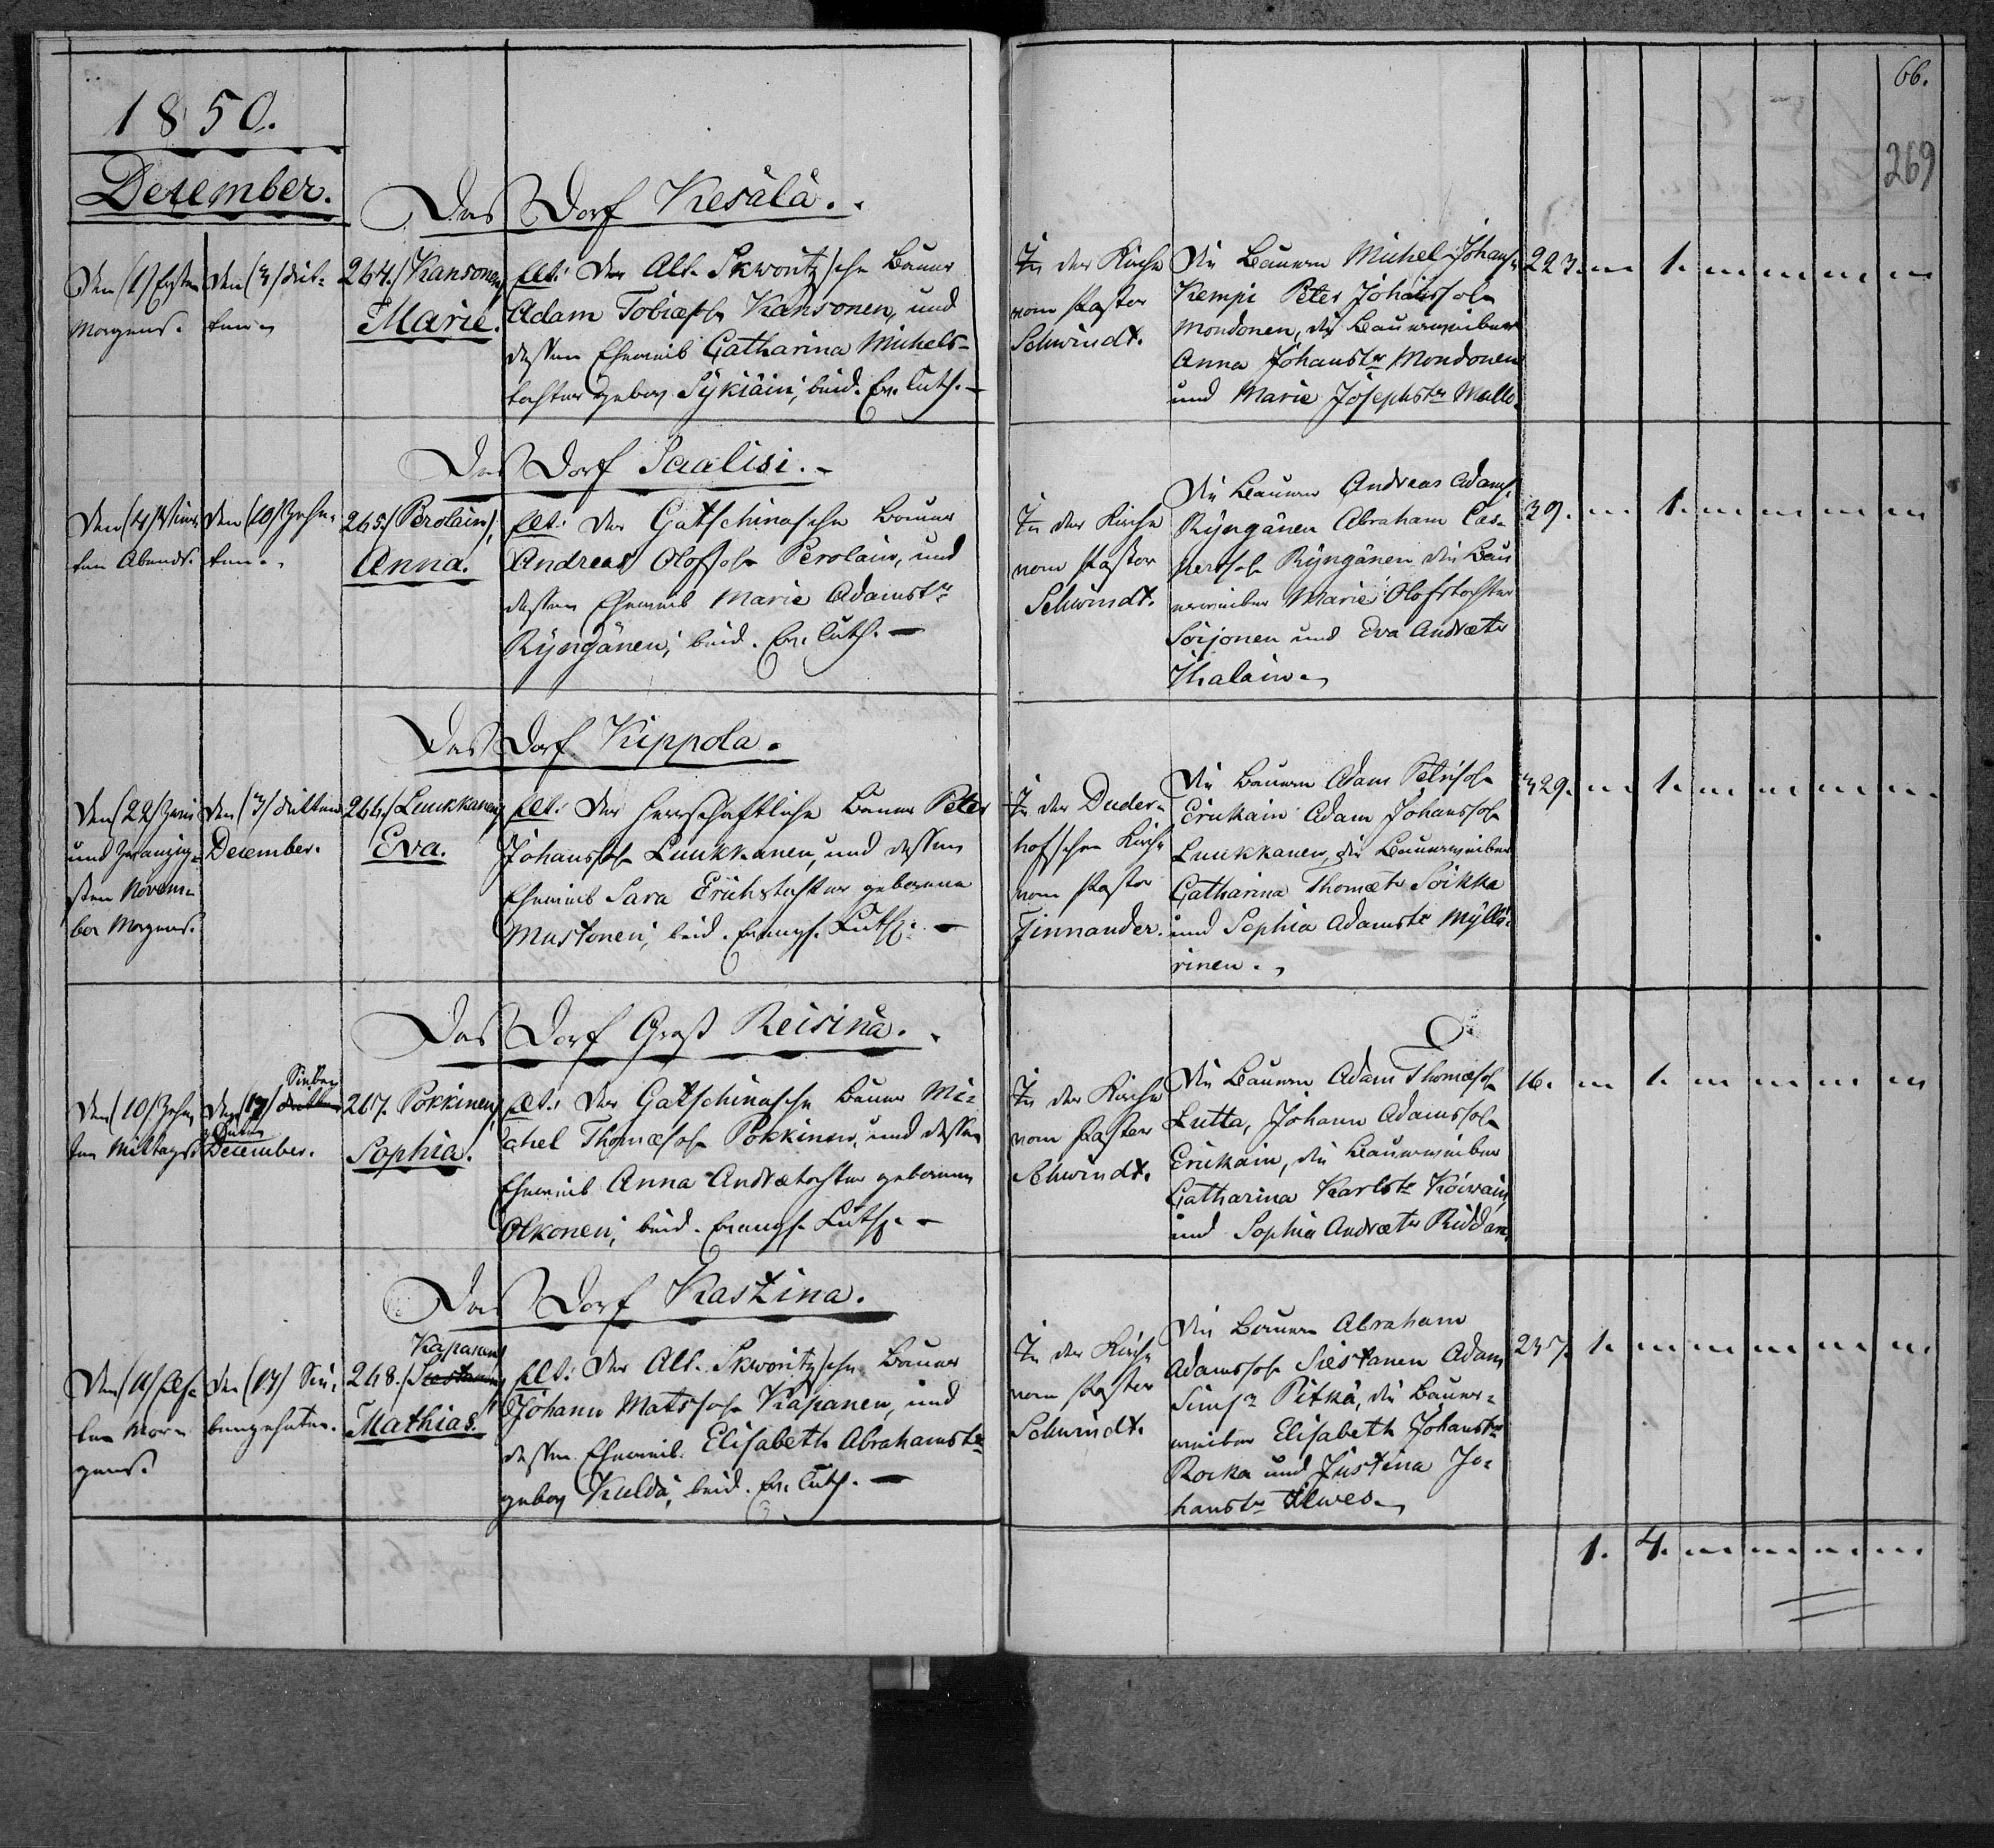 66.
269
1850.
December.
Das Dorf Kesälä.
Den (1) Ersten
Morgens.
den (3) drit-
ten
264. Kansonen,
Marie.
Elt: Der Alt. Skworitzsche Bauer
Adam Tobiassohn Kansonen, und
dessen Eheweib Catharina Michels-
tochter gebor. Sykiäin, beid. Ev. Luth.
In der Kirche
vom Pastor
Schwindt.
Die Bauern Michel Johans
Kempi Peter Johanssohn
Mondonen, die Bauerweiber
Anna Johanstr Mondonen
und Marie Josephstr Mulle.
223. 1.
Das Dorf Saalisi.
Den (4) Vier-
ten Abends.
Den (10) Zehn-
ten.
265. Perolain,
Anna.
Elt: Der Gatschinasche Bauer
Andreas Olofsohn Perolain, und
dessen Eheweib Marie Adamstr
Ryngänen, beid. Ev. Luth.
In der Kirche
vom Pastor
Schwindt.
Die Bauern Andreas Adams
Ryngänen Abraham Cas-
persohn Ryngänen die Bau
erweiber Marie Olofstochter
Soijonen und Eva Andraetr
Ihalain.
39. 1.
Das Dorf Kippola.
Den (22) Zwei
und Zwanzig-
sten Novem-
ber Morgens.
Den (3) dritten
December.
266. Luukkanen,
Eva.
Elt: Der herrschaftliche Bauer Peter
Johanssohn Luukkanen, und dessen
Eheweib Sara Erichstochter geborene
Mustonen, beid. Evangs. Luths.
In der Duder-
hofschen Kirche
vom Pastor
Finnander.
Die Bauern Adam Petrisohn
Erukain Adam Johanssohn
Luukkanen, die Bauerweiber
Catharina Thomaetr Soikka
und Sophia Adamstr Myllä-
rinen.
329. 1.
Das Dorf Groß Reisinä.
Den (10) Zehn
ten Mittags.
Den (17) Sieben
zehnten
December.
267. Pokkinen,
Sophia.
Elt: Der Gatschinasche Bauer Mi-
chel Thomaesohn Pokkinen, und dessen
Eheweib Anna Andraetochter geborene
Olkonen, beid. Evangs. Luths.
In der Kirche
vom Pastor
Schwindt.
Die Bauern Adam Thomaesohn
Lutta, Johann Adamssohn
Erukain, die Bauerweiber
Catharina Karlstr Koiwain,
und Sophia Andraetr Riddan.
16. 1.
Das Dorf Kaskina.
Den (11) Elf-
ten Mor-
gens.
Den (17) Sie-
benzehnten.
Käpanen
268.
Mathias.
Elt: Der Alt. Skworitzsche Bauer
Johann Matssohn Käpanen, und
dessen Eheweib Elisabeth Abrahamstr
gebor. Kuldä, beid. Ev. Luth.
In der Kirche
vom Pastor
Schwindt.
Die Bauern Abraham
Adamssohn Siestanen Adam
Pitkä, die Bauer-
weiber Elisabeth Johanstr
Rocka und Justina Jo-
hanstr Ilwes.
237. 1.
1. 4.